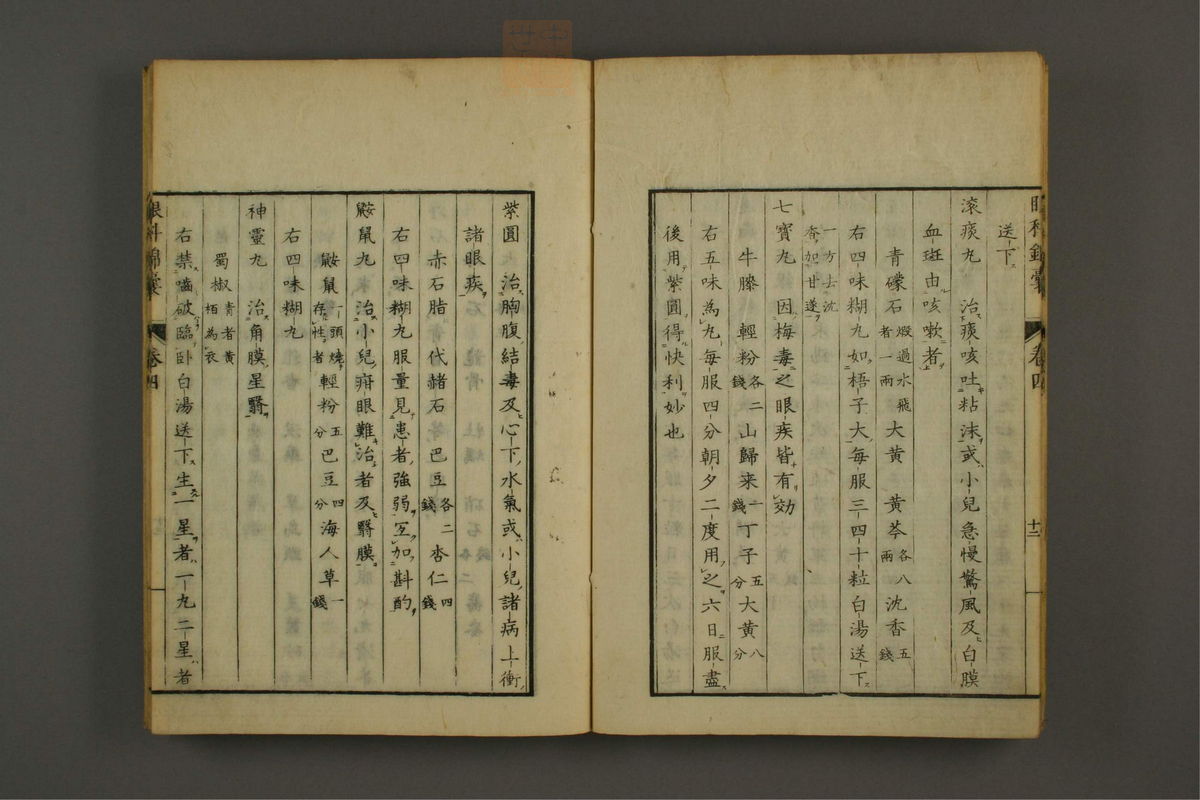 眼科錦囊 卷四 十三
送下
滚痰九 治痰咳吐粘沫或小兒急慢驚風及白膜
血斑由咳嗽者
青礞石煅過水飛者一兩大黄 黄芩各八兩沈香五錢
右四味糊九如梧子大每服三四十粒白湯送下
一方去沈香加甘遂
七寶九 因梅毒之眼疾皆有効
牛膝 輕粉各二錢山歸来一錢丁子五分大黄八分
右五味為九每服四分朝夕二度用之六日服盡
後用紫圓得快利妙也
紫圓 治胸腹結毒及心下水氣或小兒諸病上衝
諸眼疾
赤石脂 代赭石 巴豆各二錢杏仁四錢
右四味糊九服量見患者強弱互加斟酌
鼹鼠九 治小兒疳眼難治者及翳膜
鼹鼠一頭燒存性者輕粉五分巴豆四分海人草一錢
右四味糊九
神靈九 治角膜星翳
蜀椒青者黄栢為衣
右禁嚙破臨卧白湯送下生一星者一九二星者
眼科錦囊 卷四